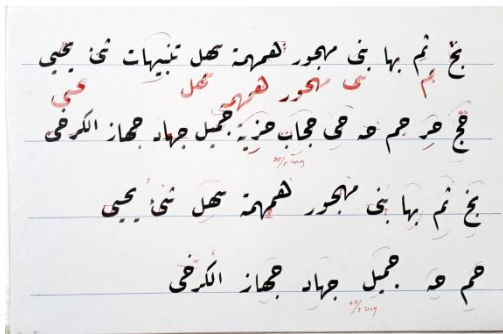 بخ ثم بها بنى مهجور همهمة سهل تنبيهات شئ يحيى
بم بنى مهجور همهمة سهل
حج حر حم حه حى حجاب حزية جميل جهاد جهاز الكرخى
بخ ثم بها بنى مهجور همهمة سهل شئ يحيى
حم حه جميل جهاد جهاز الكرخى